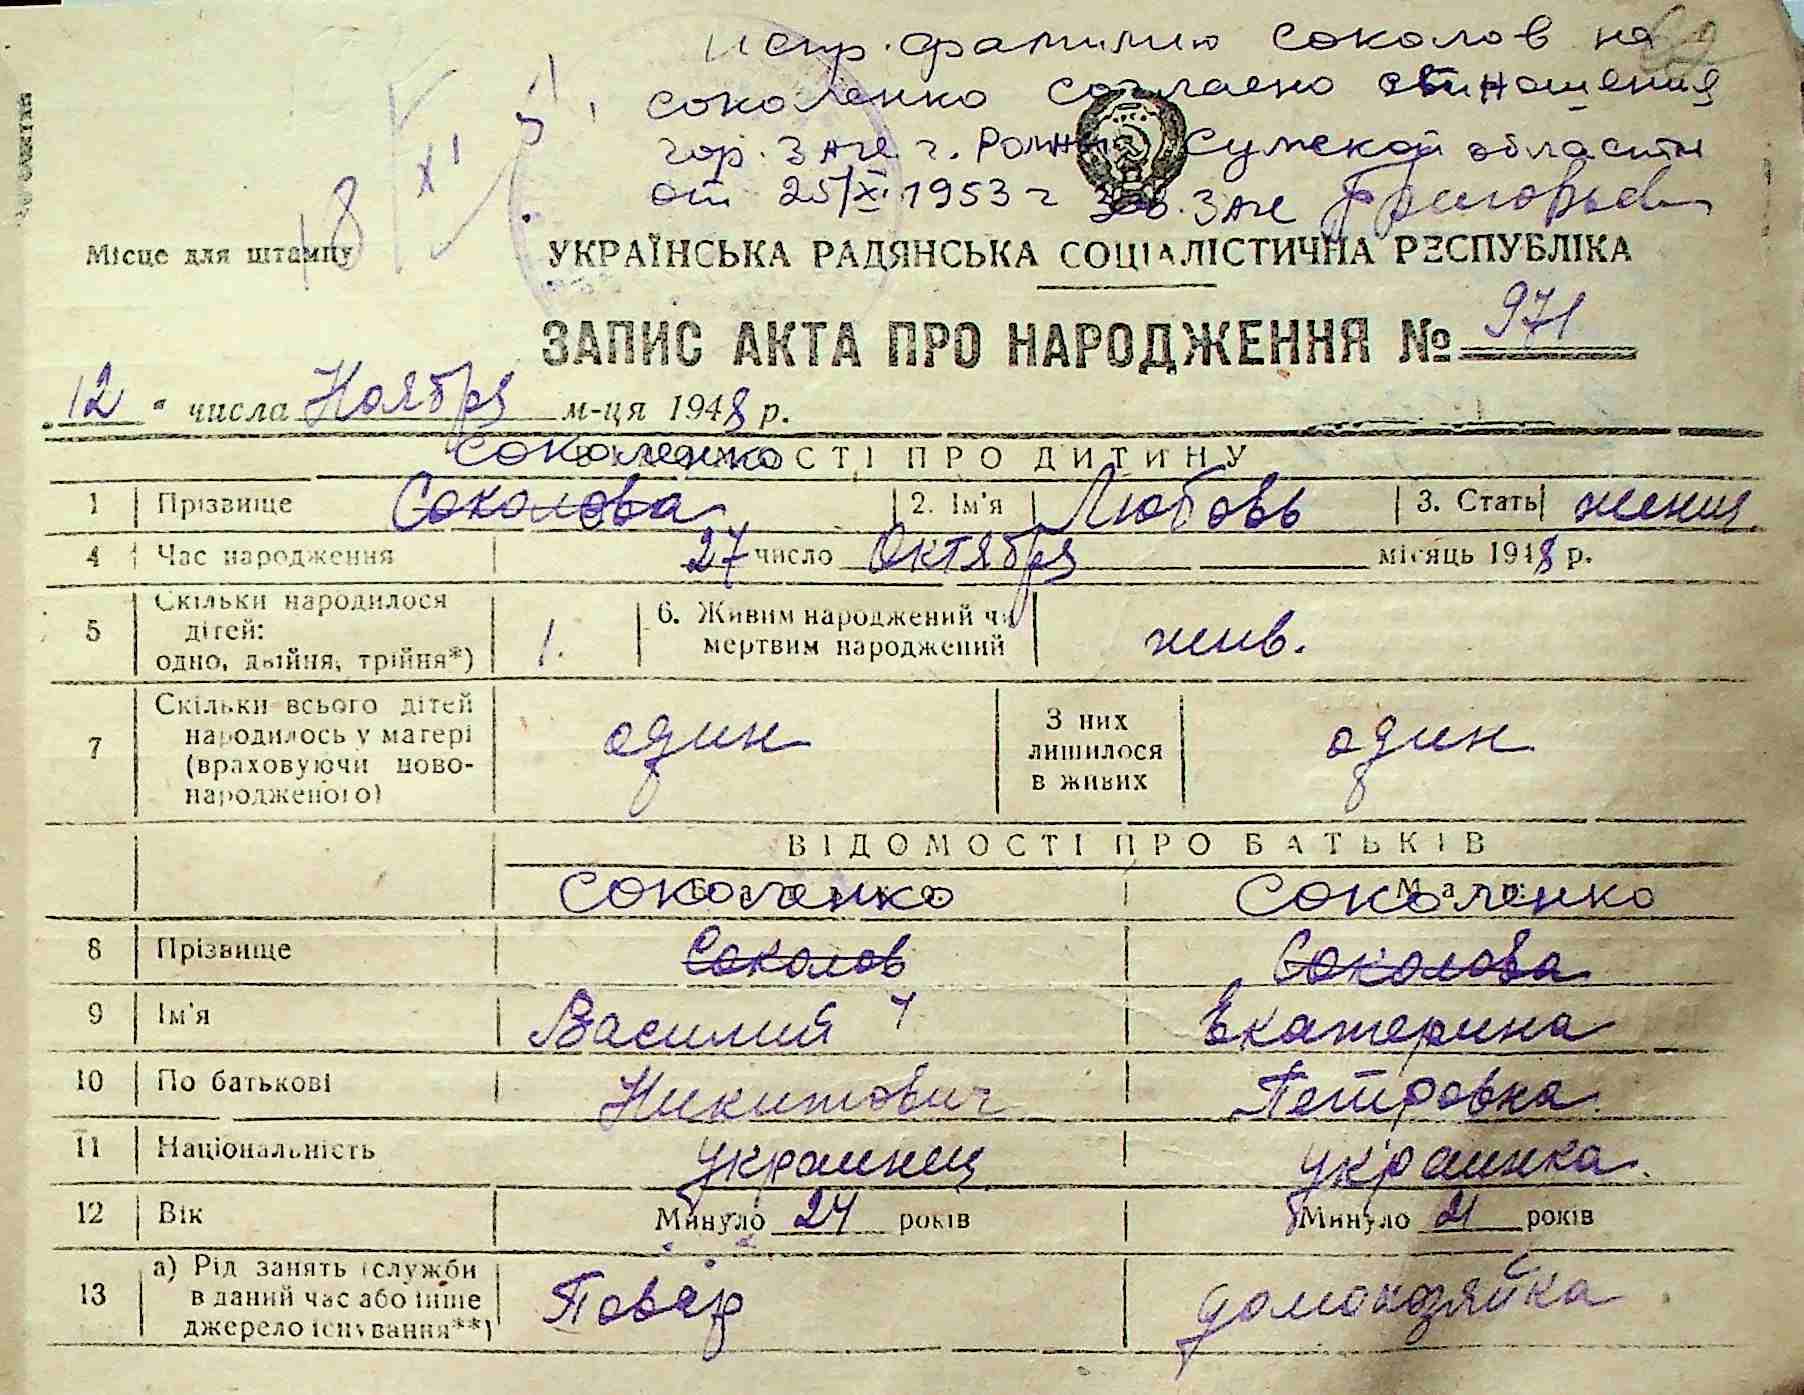 Испр. фамилию Соколов на
Соколенко согласно отношения
гор. ЗАГС г. Ромны Сумской области
от 25/XI 1953 г Зав. ЗАГС Григорьев
18/XI
Місце для штампу
УКРАЇНСЬКА РАДЯНСЬКА СОЦІАЛІСТИЧНА РЕСПУБЛІКА
ЗАПИС АКТА ПРО НАРОДЖЕННЯ № 971
12 числа Ноября м-ця 1948 р.
Соколенко
ВІДОМОСТІ ПРО ДИТИНУ
1 Прізвище Соколова 2. Ім'я Любовь 3. Стать женщ.
4 Час народження 27 число Октября місяць 1948 р.
5 Скільки народилося дітей: одно, двійня, трійня*) 1. 6. Живим народжений чи мертвим народжений жив.
7 Скільки всього дітей народилось у матері (враховуючи новонародженого) один З них лишилося в живих один
ВІДОМОСТІ ПРО БАТЬКІВ
Соколенко Соколенко
8 Прізвище Соколов Соколова
9 Ім'я Василий Екатерина
10 По батькові Никитович Петровна
11 Національність украинец украинка.
12 Вік Минуло 24 років Минуло 21 років
13 а) Рід занять (служби в даний час або інше джерело існування**) Повар домохозяйка